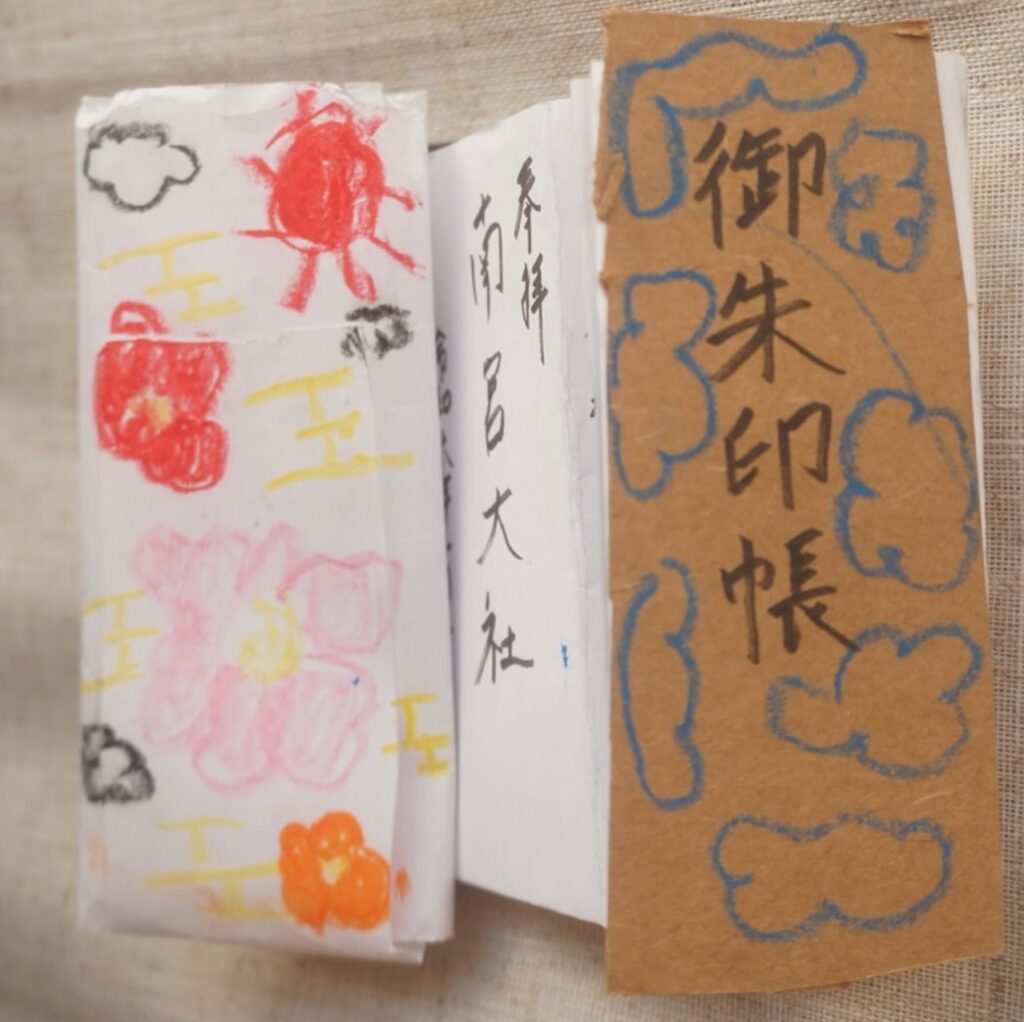 御朱印帳
奉拝
南宮大社